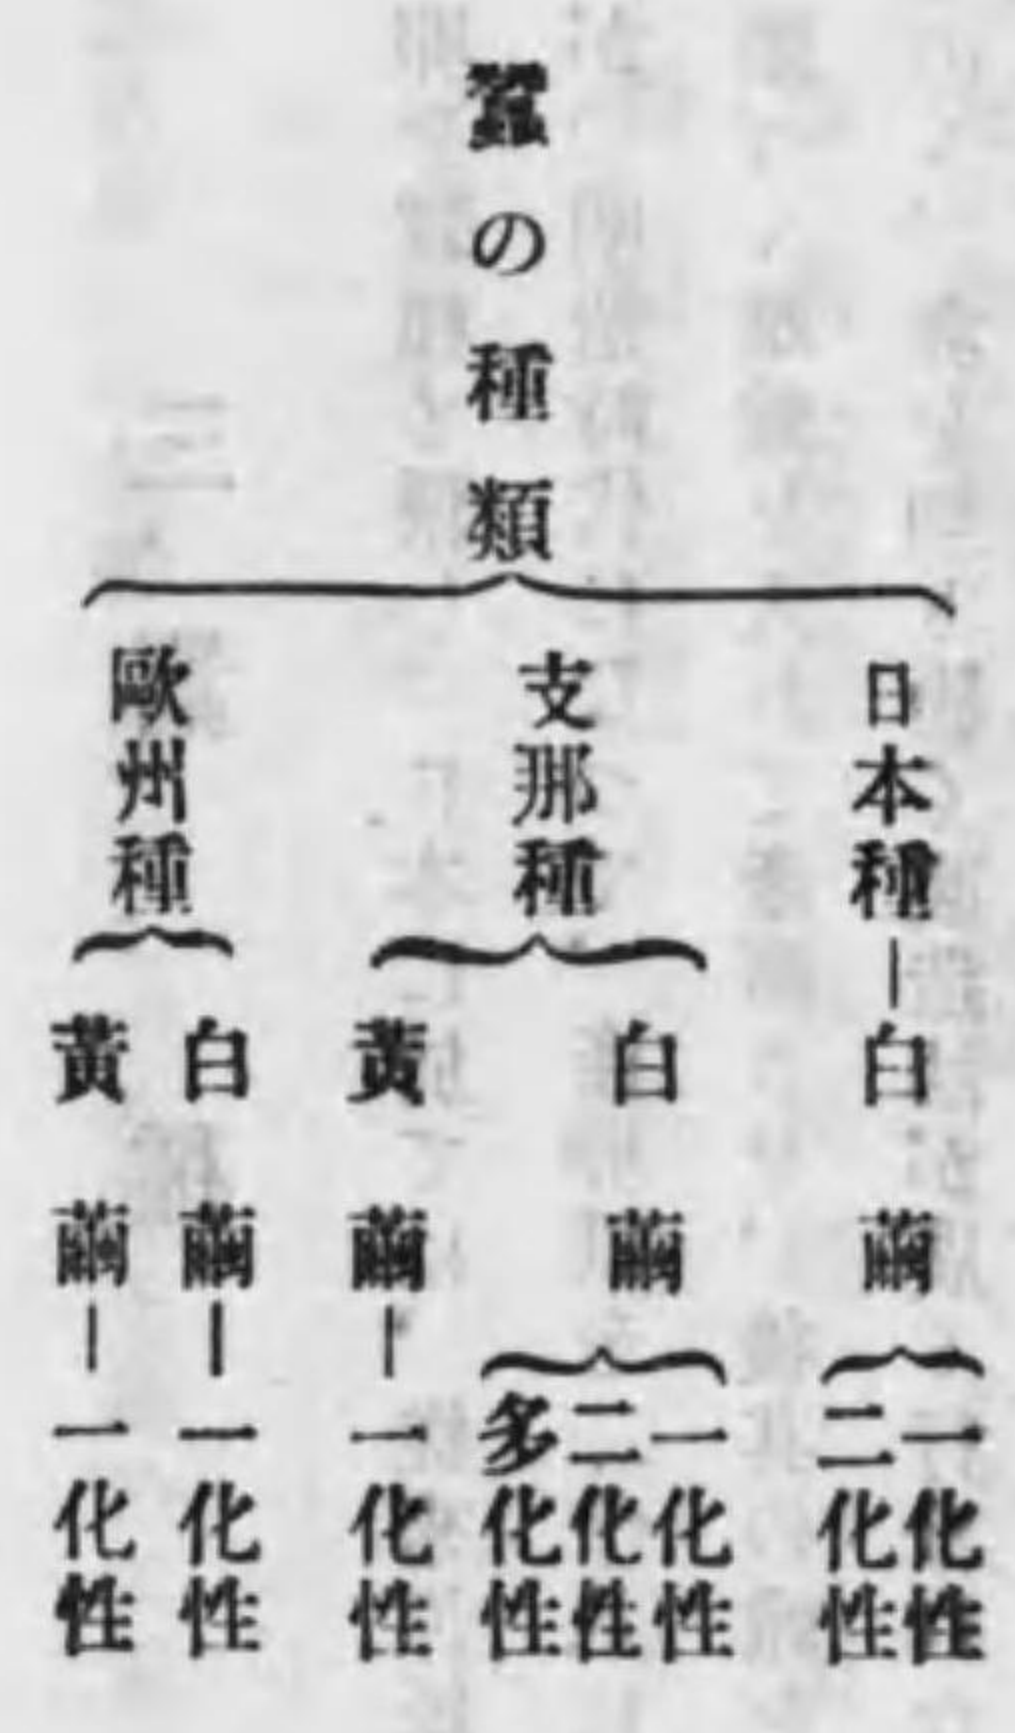 蠶の種類
日本種
白繭
一化性
二化性
支那種
白繭
一化性
二化性
多化性
黃繭
一化性
歐州種
白繭
一化性
黃繭
一化性